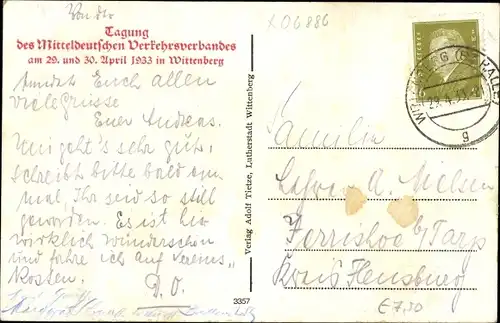 Von der
Tagung
des Mitteldeutschen Verkehrsverbandes
am 29. und 30. April 1933 in Wittenberg
sendet Euch allen
viele Grüsse
Euer Andreas.
Mir geht's sehr gut,
schreibt bitte bald ein
mal, Ihr seid so still
geworden. Es ist hier
wirklich wunderschön
und fahre ich auf Vereins
Kosten.
D. O.
Verlag Adolf Tietze, Lutherstadt Wittenberg
3357
X06886
g
Familie
A. Nielsen
Jerrishoe b/Tarp
Kreis Flensburg
€ 7,50